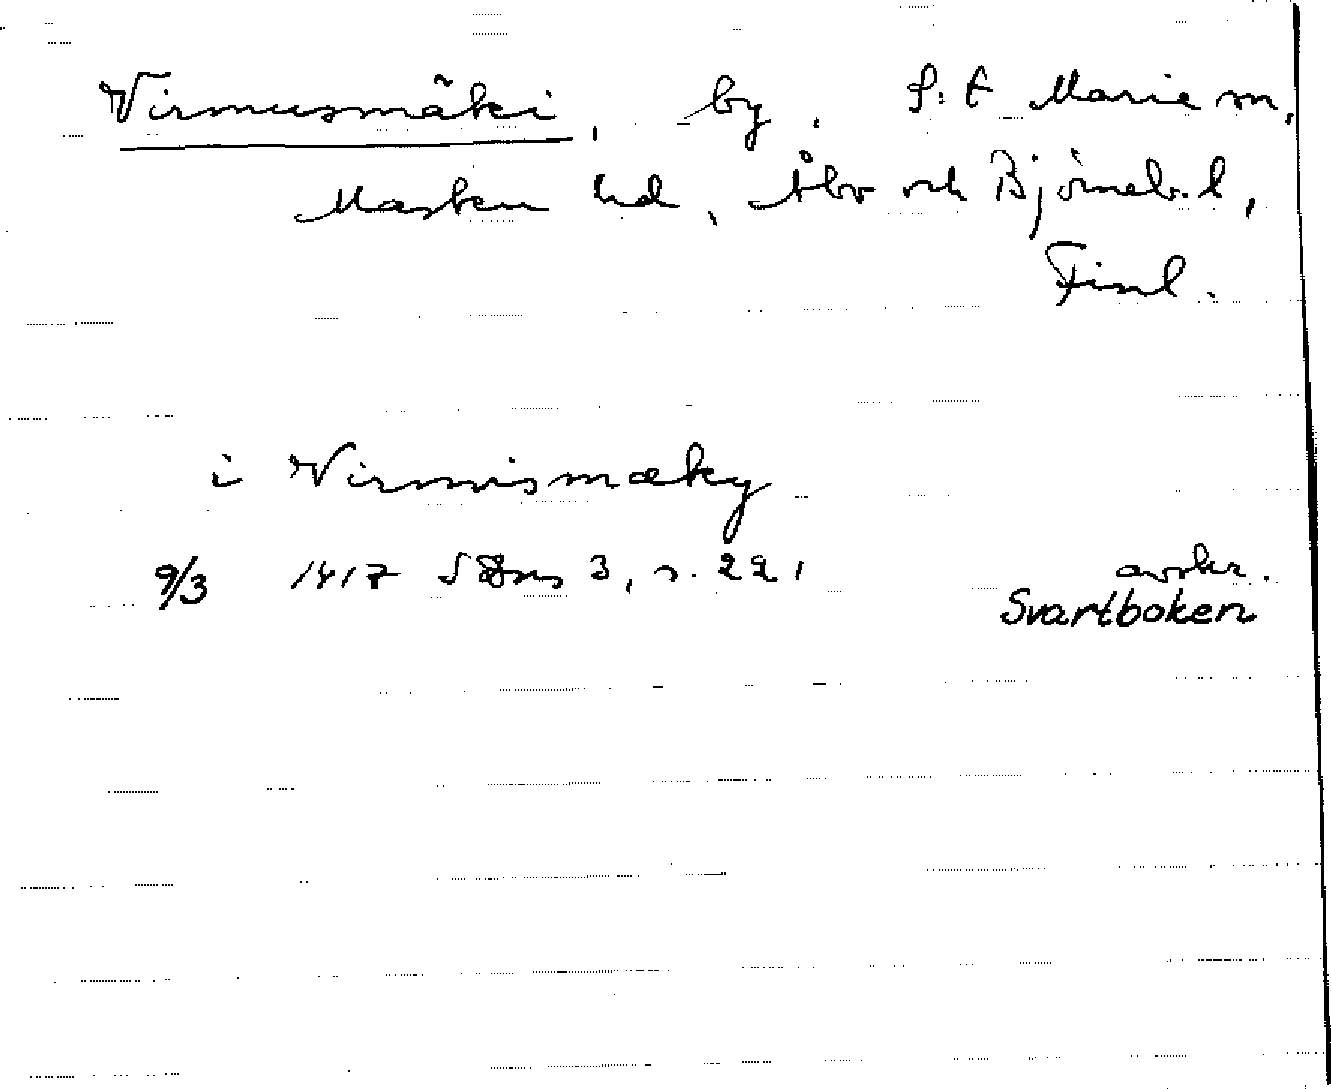 Virmusmäki, by, S:t Marie sn,
Masku hd, Åbo och Björneb. l,
Finl.
i Virmismæky
9/3 1417 SDns 3, s. 221 avskr.
Svartboken